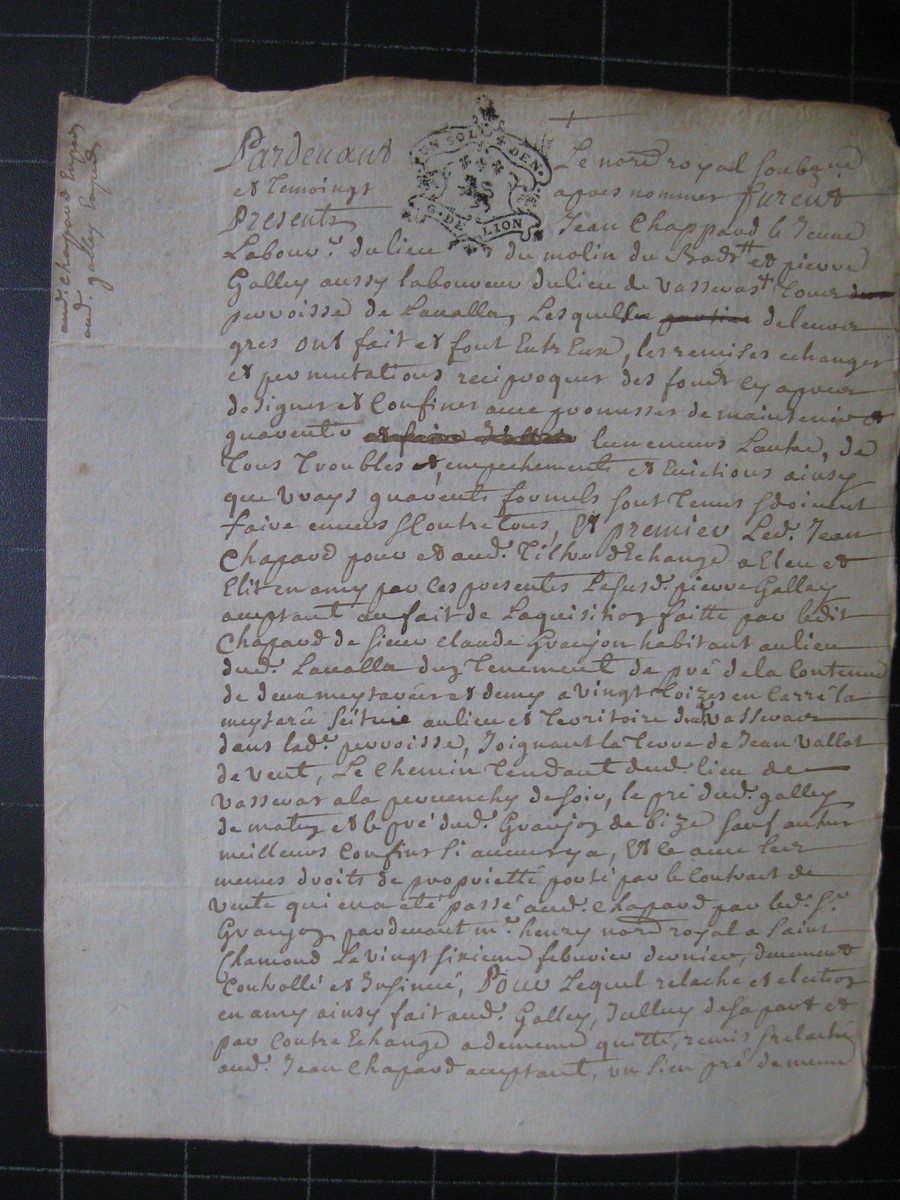 aud. Chapard Expédié
aud. galley Expédié
UN SOL * DEN.
G. DE LION
Pardevant Le nore royal soubsné
et temoings apres nommer furent
Presents Jean Chappard le Jeune
Labour.r du lieu du molin du et pierre
Galley aussy laboureur du lieu de vassera
perroisse de Lavalla, Lesquels de leurs
gres ont fait et font Entr Eux, les remises echanges
et permutations reciproques des fonds cy apres
designes et Confines avec promesses de maintenir et
guarentir lun envers Lautre, de
tous troubles et, empechements et Evictions ainsy
que vrays guarents formels sont tenus & doivent
faire envers & Contre tous, Et premier Led. Jean
Chapard pour et aud. tiltre dEchange a Eleu et
Elit en amy par Ces presentes Le susd. pierre Galley
acceptant au fait de Laquisition faitte par ledit
Chapard de sieur Claude Granjon habitant au lieu
dud. Lavalla dun tenement de pré de la Contenue
de deux meytarées et demy a vingt toizes en Carré la
meyterée scituée au lieu et territoire dud. vasserar
dans lad. perroisse, Joignant la terre de Jean Vallat
de vent, Le Chemin tendant dud. lieu de
vasserar a la pervenchy de soir, le pré dud. galley
de matin et le pré dud. Granjon de bize sauf autres
meilleurs Confins si aucuns y a, Et ce avec les
memes droits de proprietté porté par le Contract de
vente qui en a été passé aud. Chapard par led. Sr.
Granjon pardevant me. henry nore royal a Saint
Chamond Le vingt sixieme febvrier dernier, deuement
Controllé et Insinué, Pour Lequel relache et election
en amy ainsy fait aud. Galley, Icelluy de sa part et
par Contre Echange a de meme quitté, remis & relaché
aud. Jean Chapard acceptant, un sien pré de meme